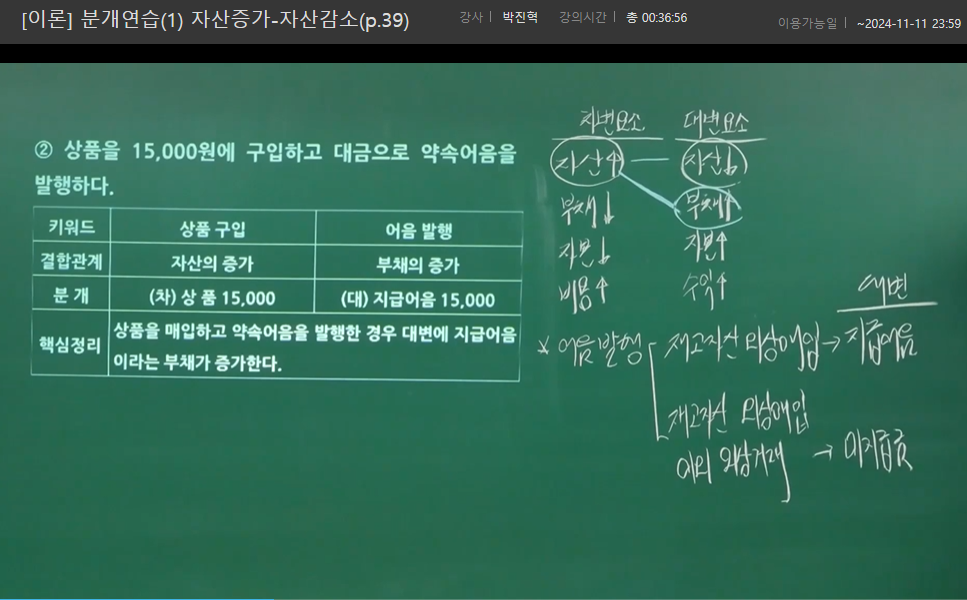 [이론] 분개연습(1) 자산증가-자산감소(p.39)
강사 | 박진혁 강의시간 | 총 00:36:56
이용가능일 | ~2024-11-11 23:59
② 상품을 15,000원에 구입하고 대금으로 약속어음을
발행하다.
키워드 상품 구입 어음 발행
결합관계 자산의 증가 부채의 증가
분 개 (차) 상 품 15,000 (대) 지급어음 15,000
핵심정리 상품을 매입하고 약속어음을 발행한 경우 대변에 지급어음
이라는 부채가 증가한다.
차변요소 대변요소
자산↑ 자산↓
부채↓ 부채↑
자본↓ 자본↑
비용↑ 수익↑
대변
* 어음발행 재고자산 외상매입 → 지급어음
재고자산 외상매입
이외 외상거래 → 미지급금